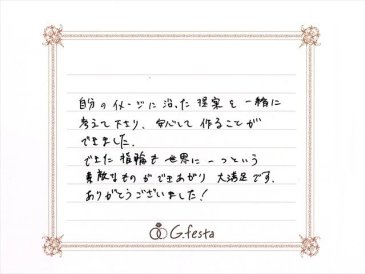 自分のイメージに沿った提案を一緒に
考えて下さり、安心して作ることが
できました。
できた指輪も世界に一つという
素敵なものができあがり大満足です。
ありがとうございました!
G.festa